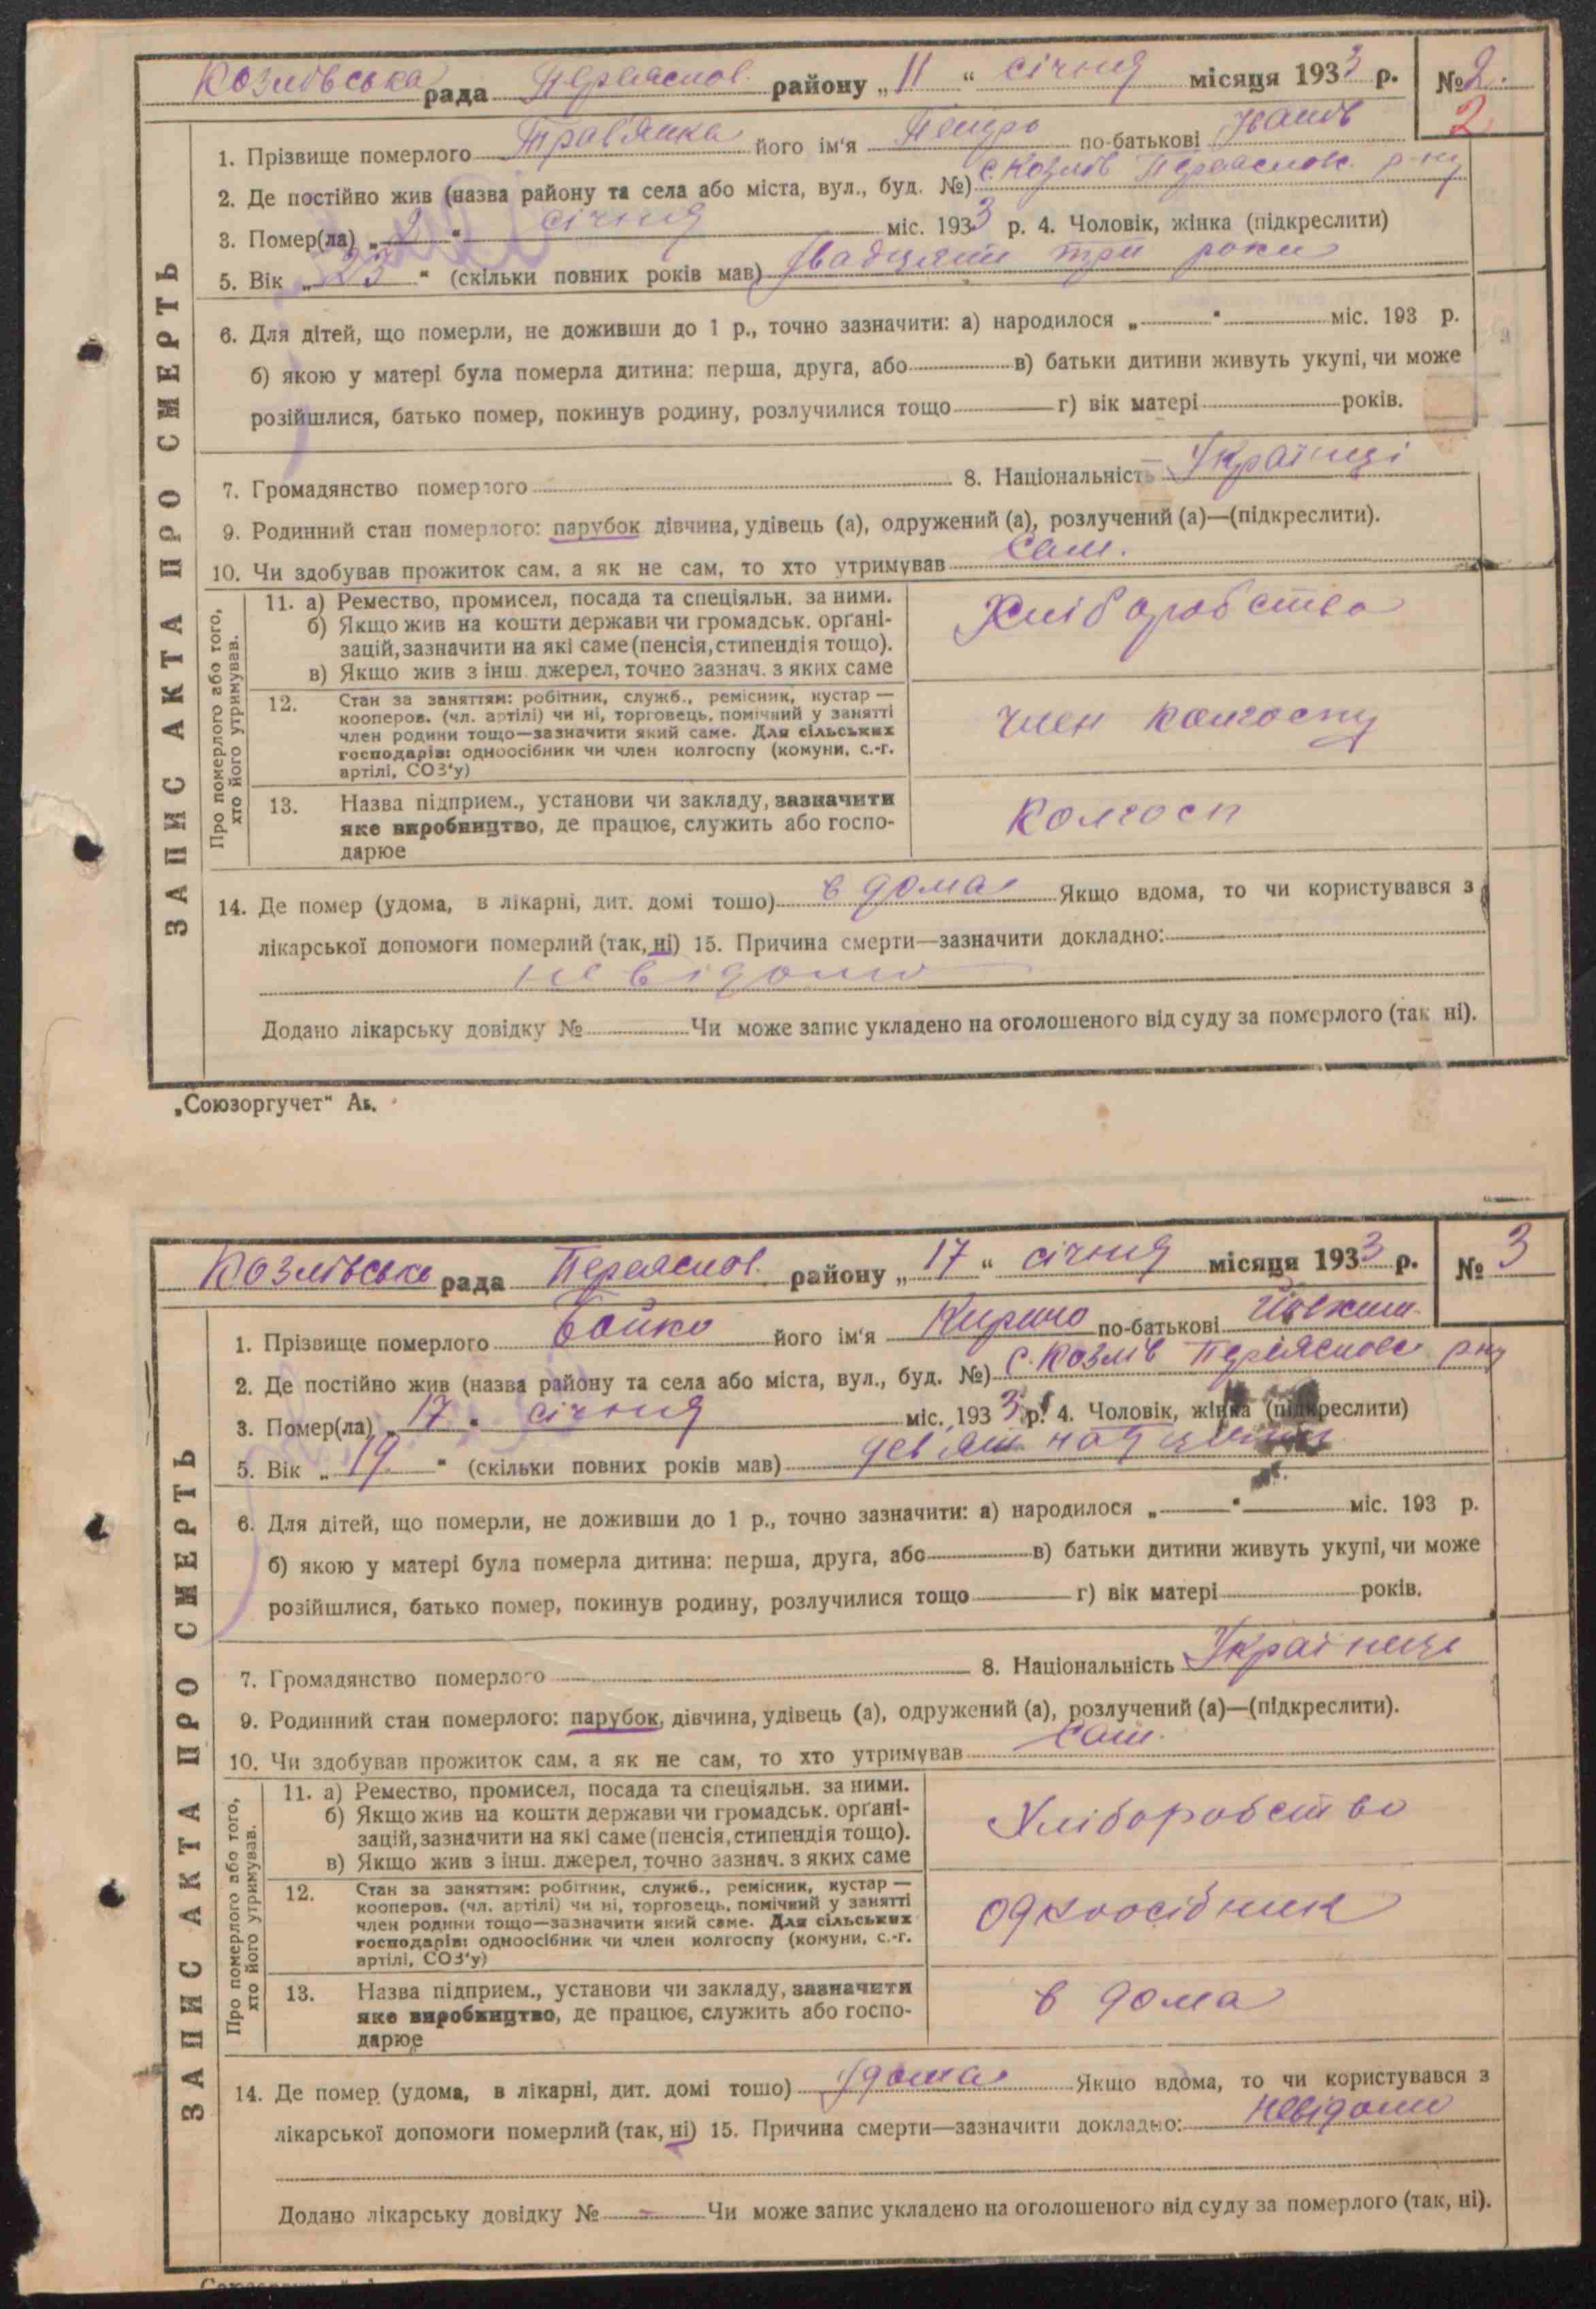 Козлівська рада Переяслов. району „11“ січня місяця 1933 р. №2.
2
1. Прізвище померлого Травянка його ім'я Петро по-батькові Іванов
2. Де постійно жив (назва району та села або міста, вул., буд. №) с. Козлів Переясловс. р-ну
3. Помер(ла) „2“ січня міс. 1933 р. 4. Чоловік, жінка (підкреслити)
5. Вік „23“ (скільки повних років мав) двадцять три роки
6. Для дітей, що померли, не доживши до 1 р., точно зазначити: а) народилося „—“ міс. 193 р.
б) якою у матері була померла дитина: перша, друга, або в) батьки дитини живуть укупі, чи може
розійшлися, батько помер, покинув родину, розлучилися тощо г) вік матері років.
7. Громадянство померлого 8. Національність Українці
9. Родинний стан померлого: парубок дівчина, удівець (а), одружений (а), розлучений (а)—(підкреслити).
10. Чи здобував прожиток сам, а як не сам, то хто утримував сам.
11. а) Ремество, промисел, посада та спеціяльн. за ними.
б) Якщо жив на кошти держави чи громадськ. орґані-
зацій, зазначити на які саме (пенсія, стипендія тощо).
в) Якщо жив з інш. джерел, точно зазнач. з яких саме
Хліборобство
12. Стан за заняттям: робітник, служб., ремісник, кустар —
кооперов. (чл. артілі) чи ні, торговець, помічний у занятті
член родини тощо—зазначити який саме. Для сільських
господарів: одноосібник чи член колгоспу (комуни, с.-г.
артілі, СОЗ'у)
член колгоспу
13. Назва підприєм., установи чи закладу, зазначити
яке виробництво, де працює, служить або госпо-
дарює
Колгосп
14. Де помер (удома, в лікарні, дит. домі тошо) в дома Якщо вдома, то чи користувався з
лікарської допомоги померлий (так, ні) 15. Причина смерти—зазначити докладно:
невідомо
Додано лікарську довідку № Чи може запис укладено на оголошеного від суду за померлого (так ні).
ЗАПИС АКТА ПРО СМЕРТЬ
Про померлого або того,
хто його утримував.
„Союзоргучет“
Козлівська рада Переяслов. району „17“ січня місяця 1933 р. № 3
1. Прізвище померлого Бойко його ім'я Кирило по-батькові
2. Де постійно жив (назва району та села або міста, вул., буд. №) с. Козлів Переясловс р-ну
3. Помер(ла) „17“ січня міс. 1933 р. 4. Чоловік, жінка (підкреслити)
5. Вік „19“ (скільки повних років мав) девятнадцять
6. Для дітей, що померли, не доживши до 1 р., точно зазначити: а) народилося „—“ міс. 193 р.
б) якою у матері була померла дитина: перша, друга, або в) батьки дитини живуть укупі, чи може
розійшлися, батько помер, покинув родину, розлучилися тощо г) вік матері років.
7. Громадянство померлого 8. Національність Українець
9. Родинний стан померлого: парубок, дівчина, удівець (а), одружений (а), розлучений (а)—(підкреслити).
10. Чи здобував прожиток сам, а як не сам, то хто утримував сам.
11. а) Ремество, промисел, посада та спеціяльн. за ними.
б) Якщо жив на кошти держави чи громадськ. орґані-
зацій, зазначити на які саме (пенсія, стипендія тощо).
в) Якщо жив з інш. джерел, точно зазнач. з яких саме
Хліборобство
12. Стан за заняттям: робітник, служб., ремісник, кустар —
кооперов. (чл. артілі) чи ні, торговець, помічний у занятті
член родини тощо—зазначити який саме. Для сільських
господарів: одноосібник чи член колгоспу (комуни, с.-г.
артілі, СОЗ'у)
одноосібник
13. Назва підприєм., установи чи закладу, зазначити
яке виробництво, де працює, служить або госпо-
дарює
в дома
14. Де помер (удома, в лікарні, дит. домі тошо) удома Якщо вдома, то чи користувався з
лікарської допомоги померлий (так, ні) 15. Причина смерти—зазначити докладно: невідомо
Додано лікарську довідку № — Чи може запис укладено на оголошеного від суду за померлого (так, ні).
ЗАПИС АКТА ПРО СМЕРТЬ
Про померлого або того,
хто його утримував.